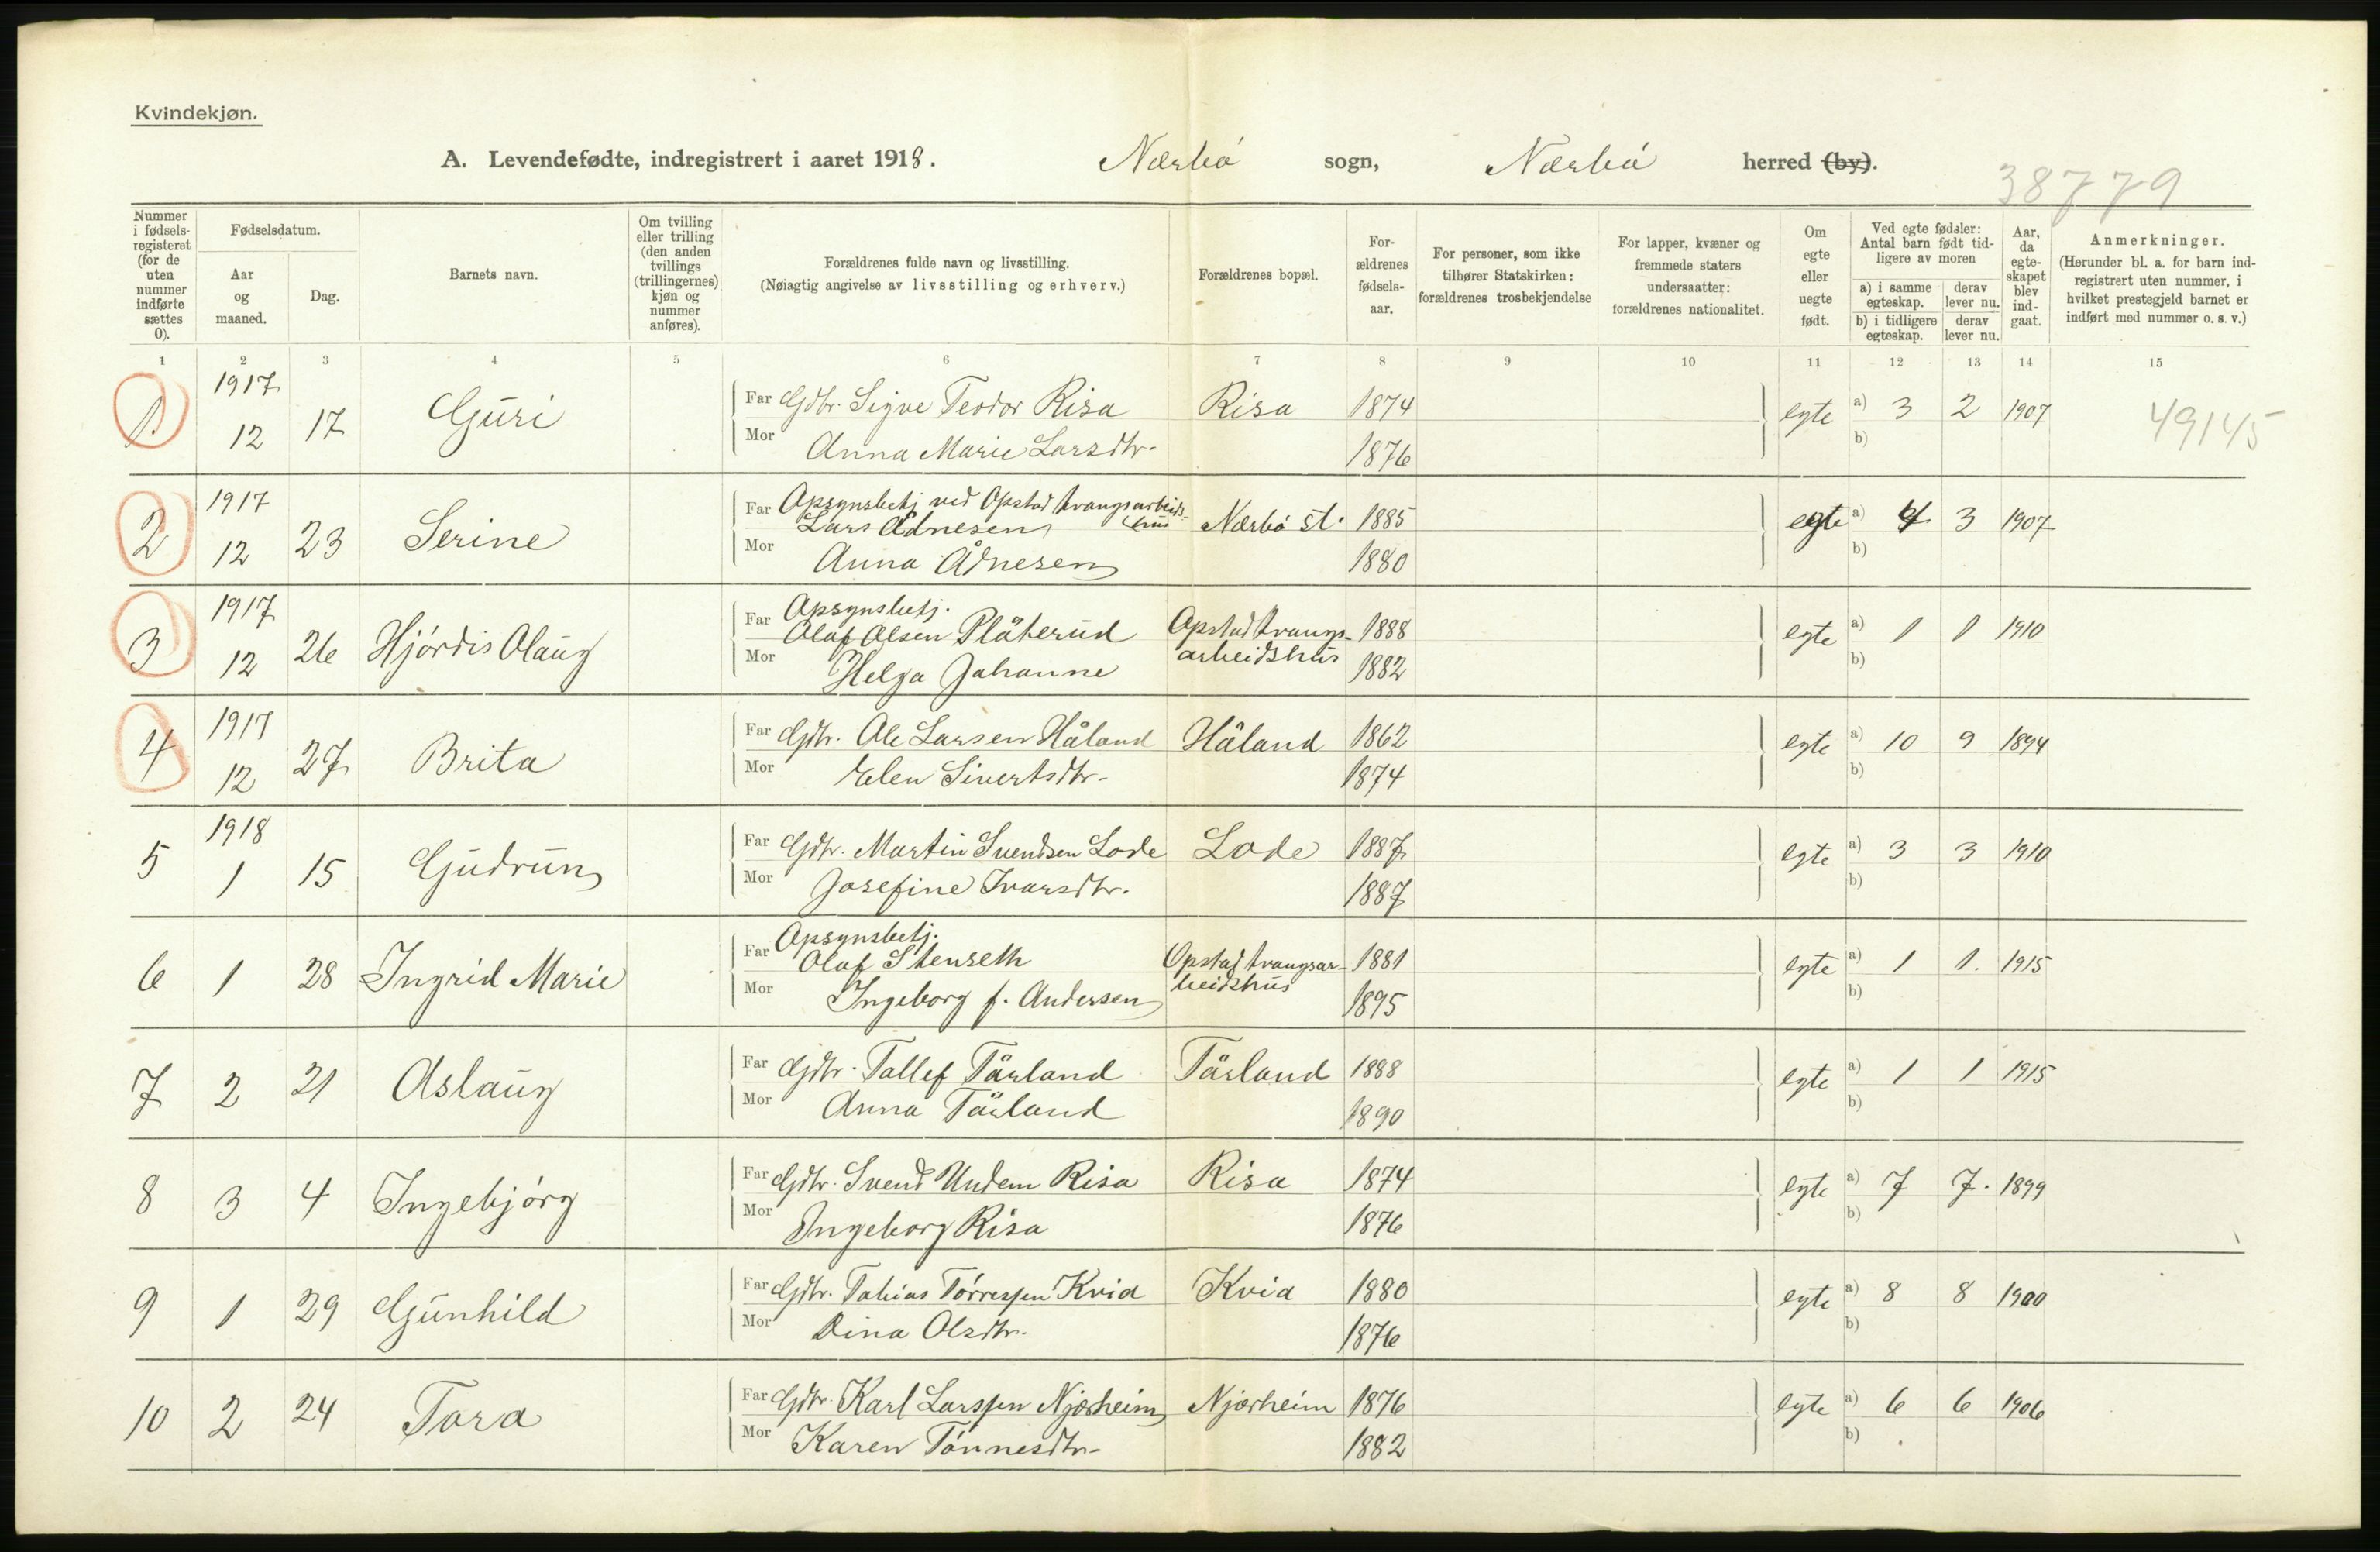 Kvindekjøn.
A. Levendefødte, indregistrert i aaret 1918. Nærbø sogn, Nærbø herred (by).
38779
Nummer i fødsels-registeret (for de uten nummer indførte sættes 0).
Fødselsdatum.
Aar og maaned.
Dag.
Barnets navn.
Om tvilling eller trilling (den anden tvillings (trillingernes) kjøn og nummer anføres).
Forældrenes fulde navn og livsstilling.
(Nøiagtig angivelse av livsstilling og erhverv.)
Forældrenes bopæl.
For-ældrenes fødsels-aar.
For personer, som ikke tilhører Statskirken: forældrenes trosbekjendelse
For lapper, kvæner og fremmede staters undersaatter: forældrenes nationalitet.
Om egte eller uegte født.
Ved egte fødsler: Antal barn født tid-ligere av moren
a) i samme egteskap. derav lever nu.
b) i tidligere egteskap. derav lever nu.
Aar, da egte-skapet blev ind-gaat.
Anmerkninger.
(Herunder bl. a. for barn ind-registrert uten nummer, i hvilket prestegjeld barnet er indført med nummer o. s. v.)
1 2 3 4 5 6 7 8 9 10 11 12 13 14 15
1. 1917 12 17 Guri Far Gdbr. Sigve Teodor Risa Risa 1874 egte a) 3 2 1907 49145
Mor Anna Marie Larsdtr. 1876 b)
2 1917 12 23 Serine Far Opsynsbetj ved Opstad tvangsarbeids-hus
Lars Ådnesen Nærbø st. 1885 egte a) 4 3 1907
Mor Anna Ådnesen 1880 b)
3 1917 12 26 Hjørdis Olaug Far Opsynsbetj.
Olaf Olsen Plåterud Opstad tvangs-arbeidshus 1888 egte a) 1 1 1910
Mor Helga Johanne 1882 b)
4 1917 12 27 Brita Far Gdbr. Ole Larsen Håland Håland 1862 egte a) 10 9 1894
Mor Elen Sivertsdtr. 1874 b)
5 1918 1 15 Gudrun Far Gdbr. Martin Svendsen Lode Lode 1887 egte a) 3 3 1910
Mor Josefine Ivarsdtr. 1887 b)
6 1 28 Ingrid Marie Far Opsynsbetj.
Olaf Stenseth Opstad tvangsar-beidshus 1881 egte a) 1 1. 1915
Mor Ingeborg f. Andersen 1895 b)
7 2 21 Aslaug Far Gdbr. Tallef Tårland Tårland 1888 egte a) 1 1 1915
Mor Anna Tårland 1890 b)
8 3 4 Ingebjørg Far Gdbr. Svend Undem Risa Risa 1874 egte a) 7 7. 1899
Mor Ingeborg Risa 1876 b)
9 1 29 Gunhild Far Gdbr. Tobias Tørressen Kvia Kvia 1880 egte a) 8 8 1900
Mor Dina Olsdtr. 1876 b)
10 2 24 Tora Far Gdbr. Karl Larssen Njærheim Njærheim 1876 egte a) 6 6 1906
Mor Karen Tønnesdtr. 1882 b)